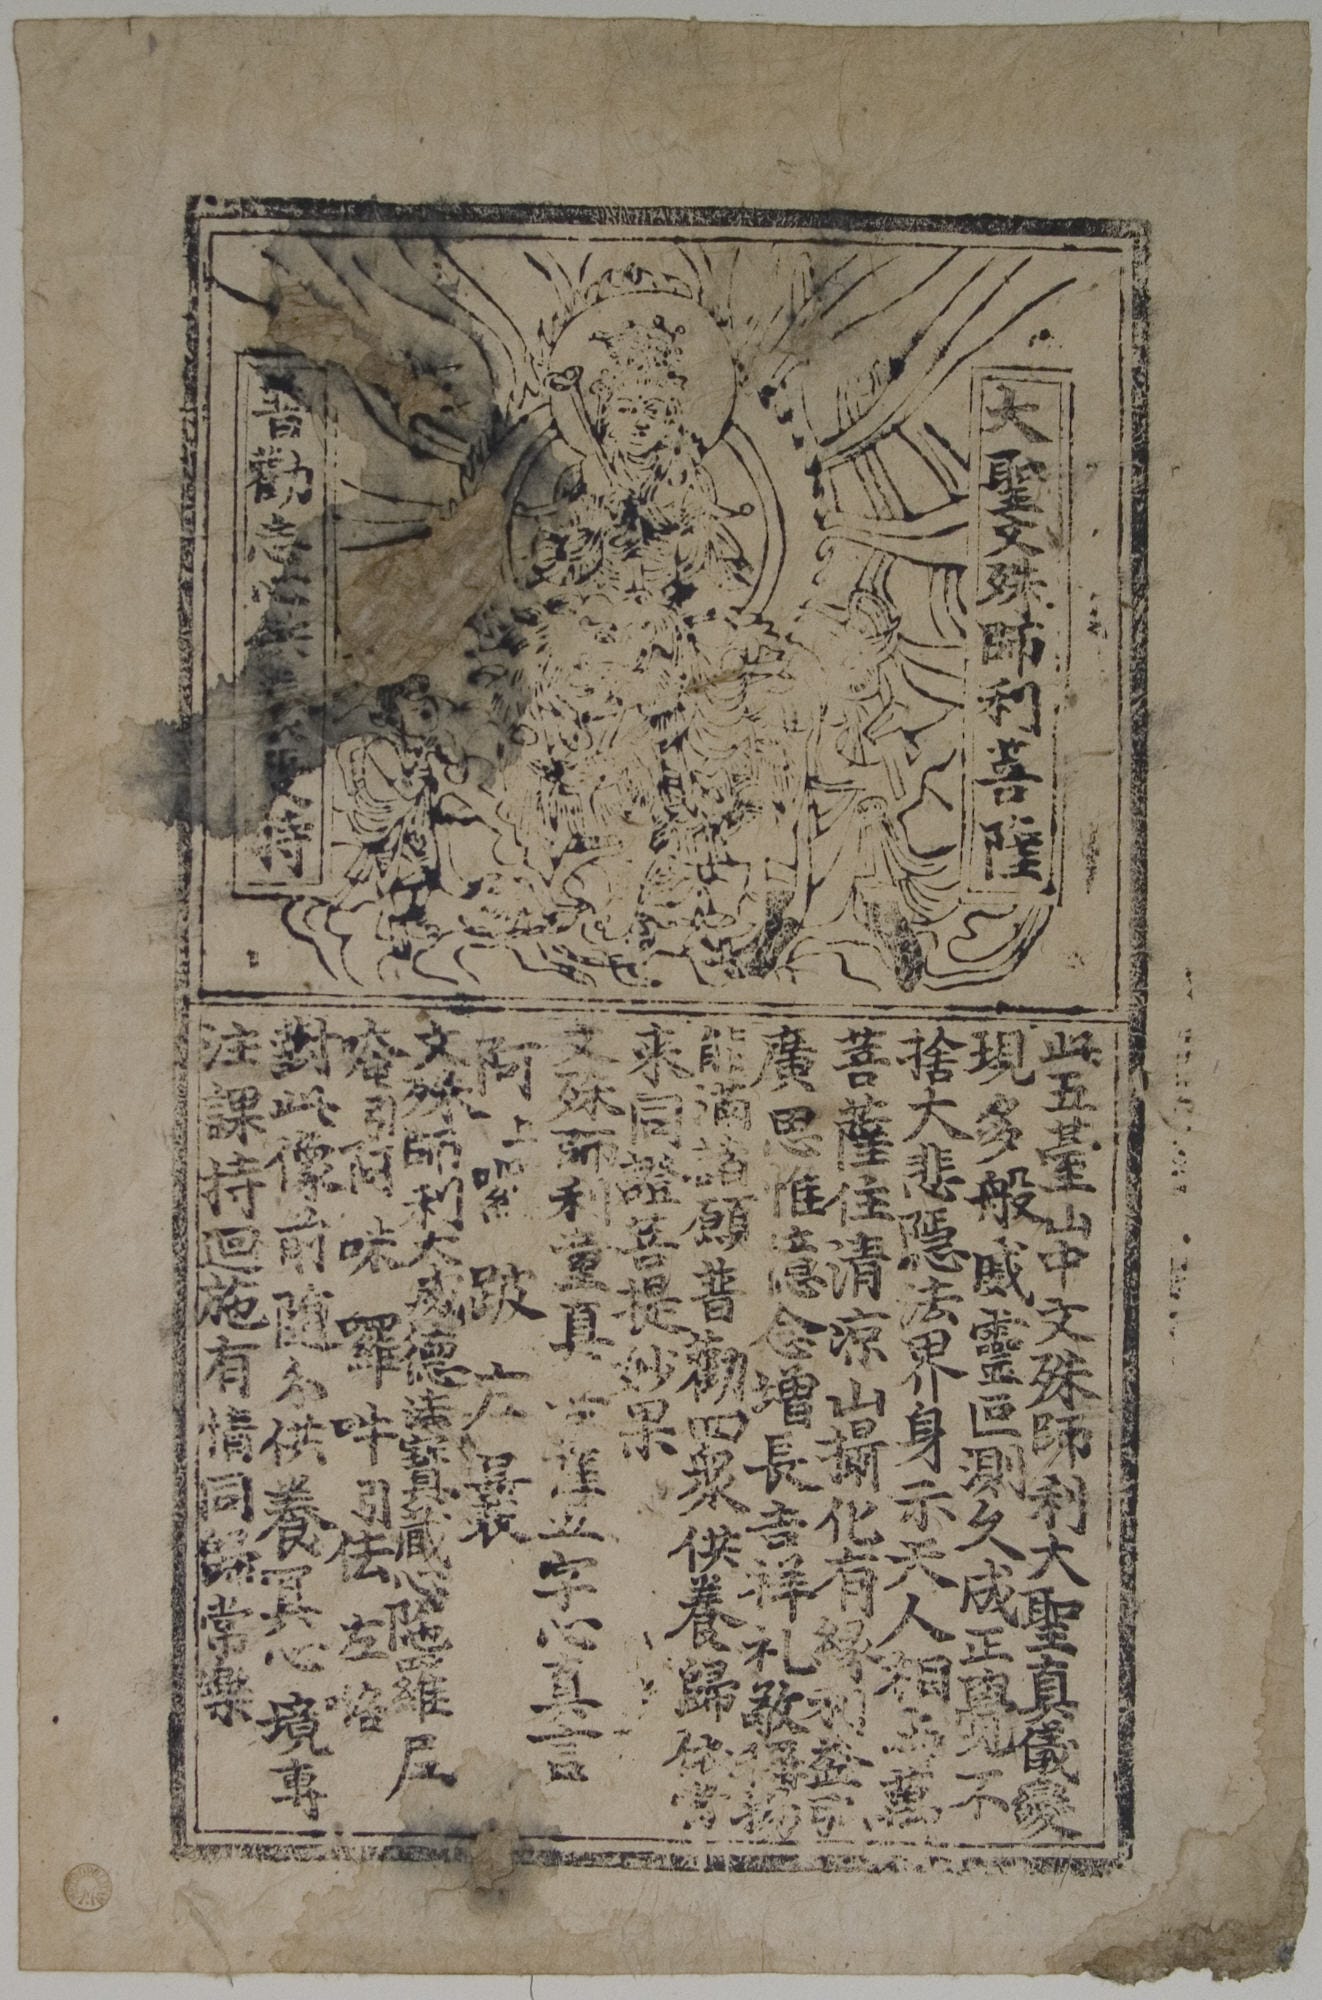 大聖文殊師利菩薩
普勸志心供養受持
此五臺山中文殊師利大聖真儀變
現多般威靈叵測久成正覺不
捨大悲隱法界身示天人相與萬
菩薩住清涼山攝化有緣利益弘
廣思惟憶念增長吉祥礼敬稱揚
能滿諸願普勸四眾供養歸依當
來同證菩提妙果
文殊師利童真菩薩五字心真言
阿 上 囉 跛 左 曩
文殊師利大威德法寶藏心陁羅尼
唵引阿 味 羅 吽引佉 左 咯
對此像前隨分供養冥心一境專
注課持迴施有情同歸常樂